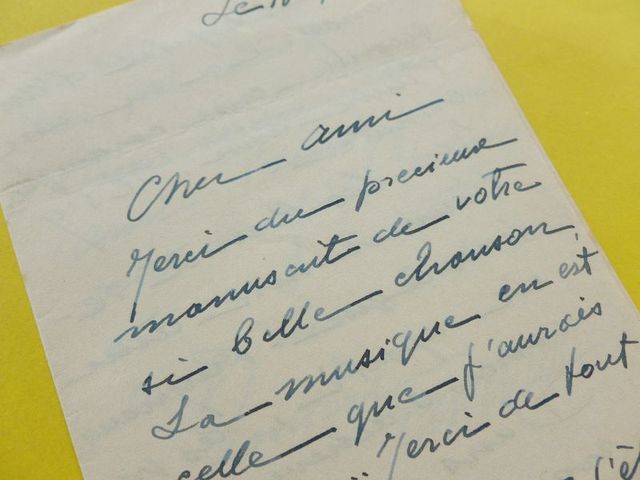 Le
Cher ami
Merci du precieux
manuscrit de votre
si belle chanson,
La musique en est
celle que j'aurais
Merci de tout